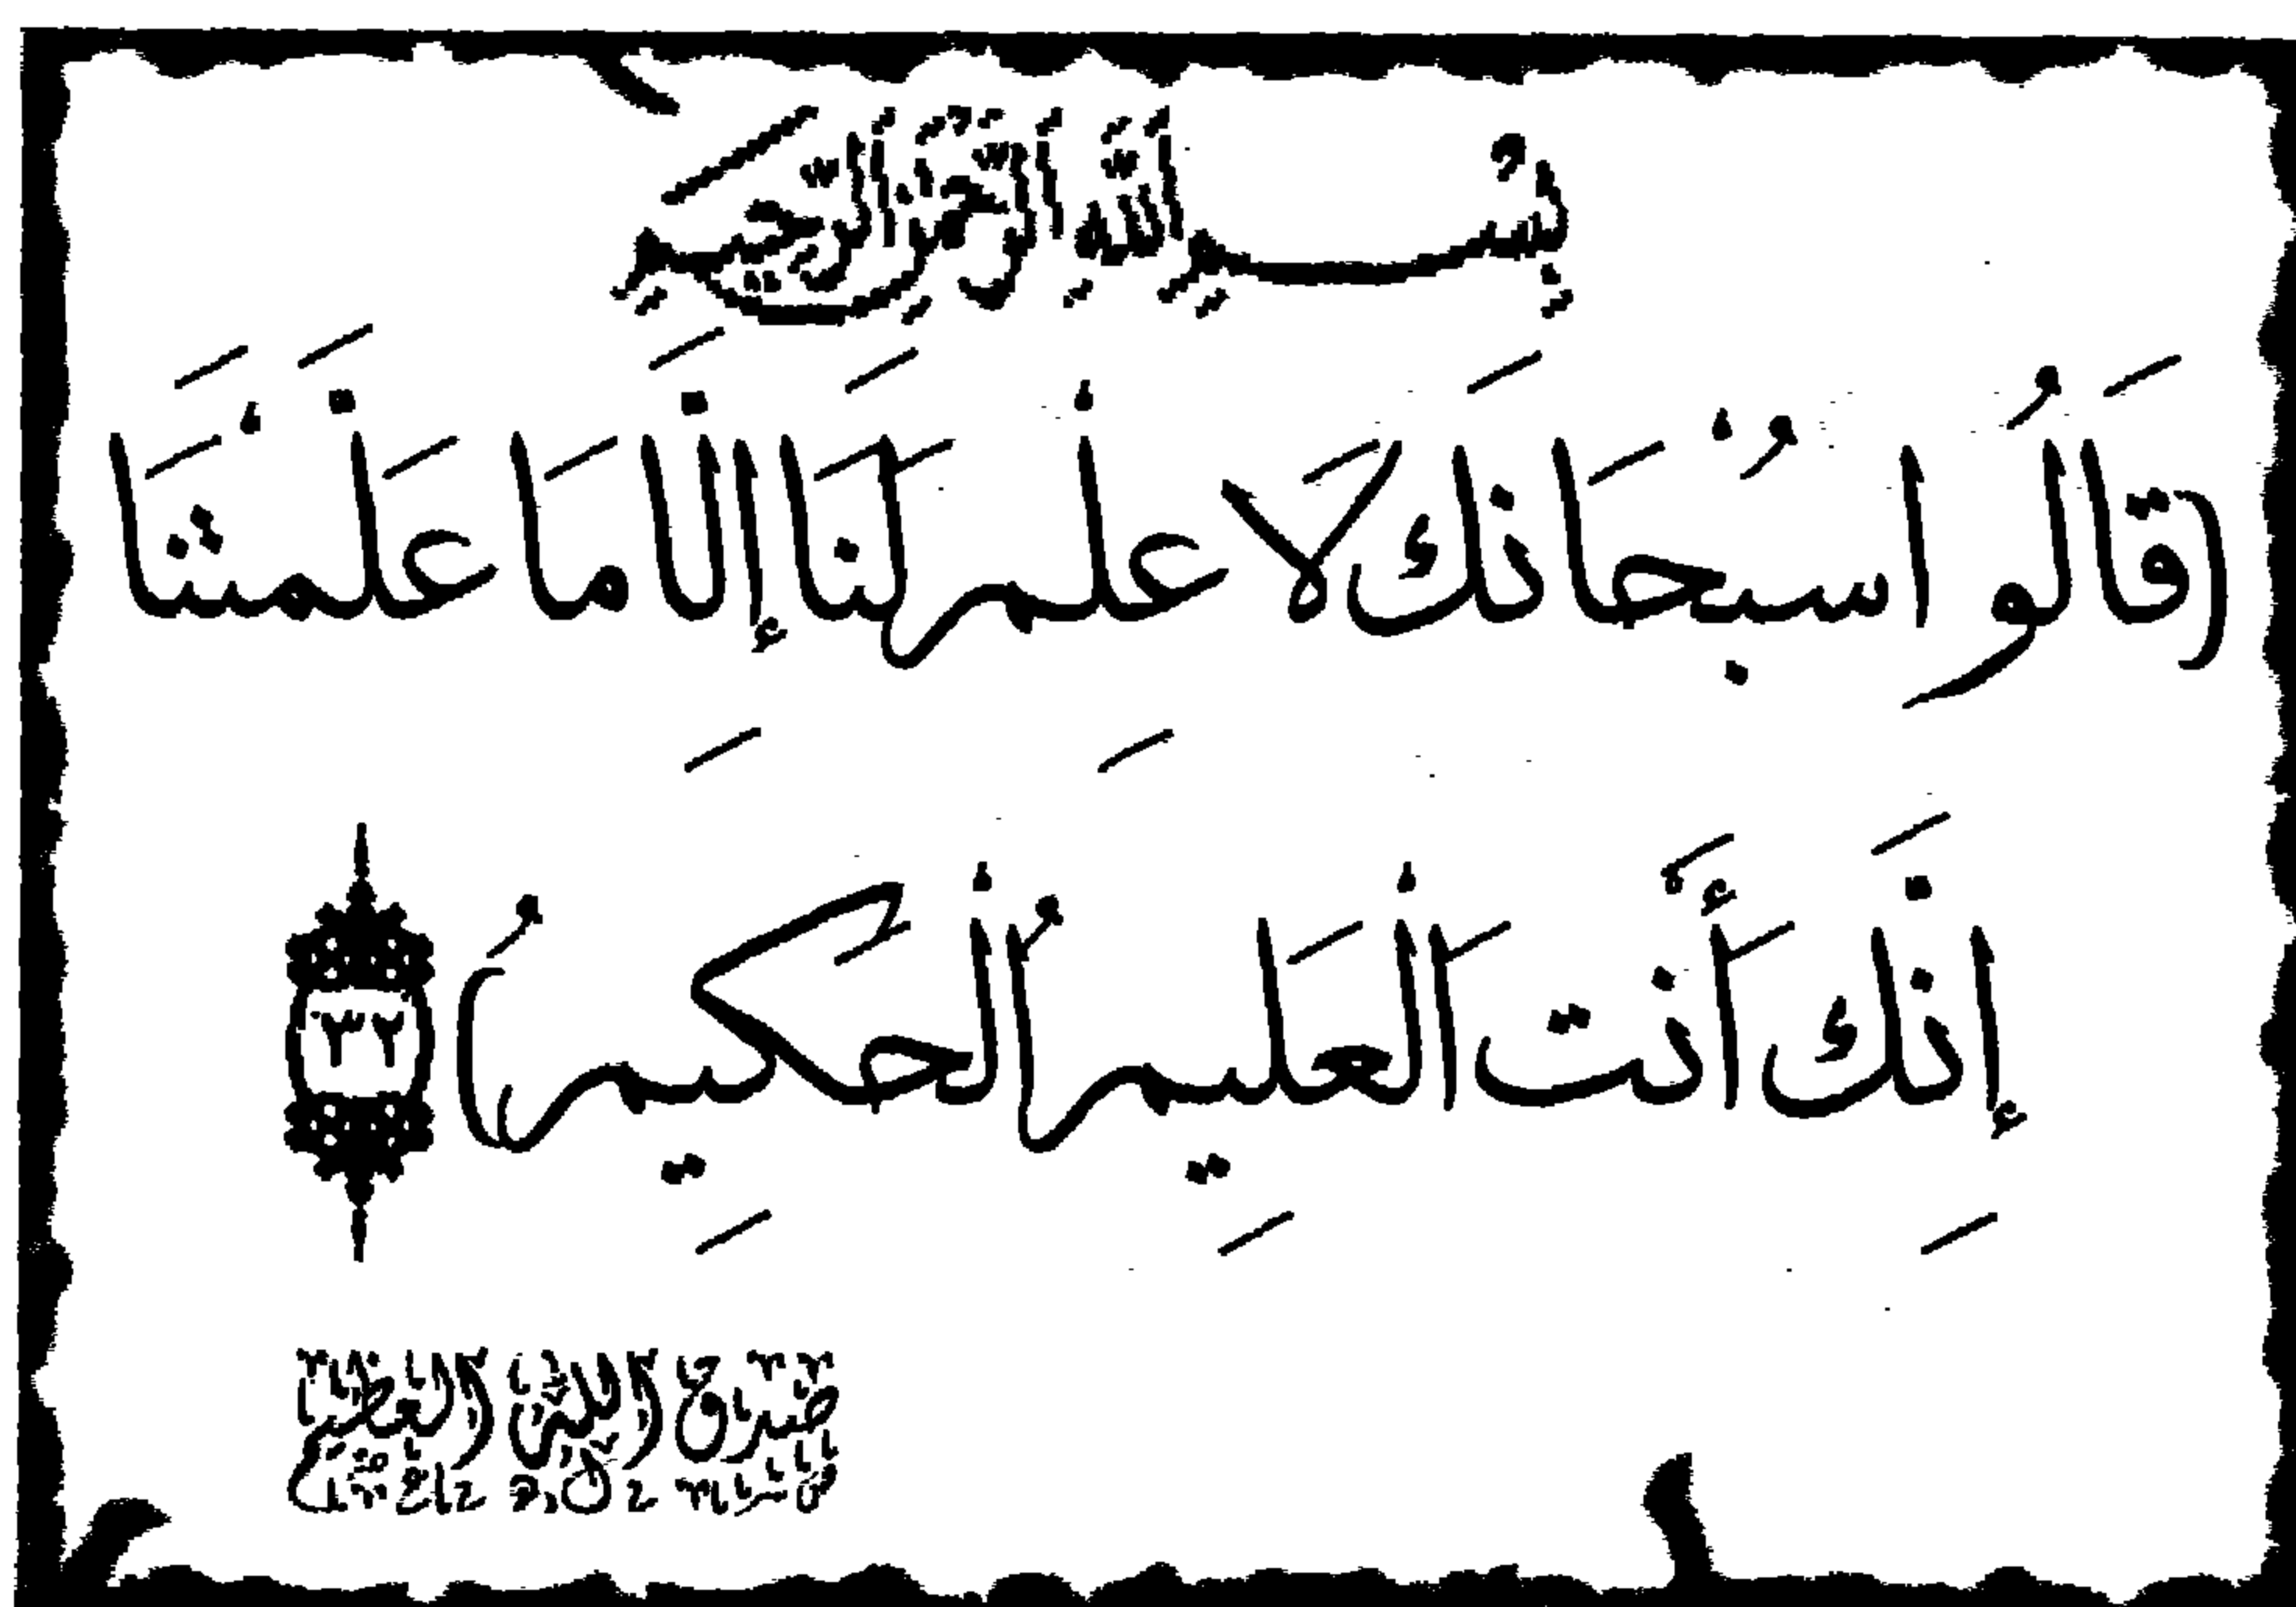 بِسْمِ اللَّهِ الرَّحْمَنِ الرَّحِيمِ
(قَالُوا سُبْحَانَكَ لَا عِلْمَ لَنَا إِلَّا مَا عَلَّمْتَنَا
إِنَّكَ أَنْتَ الْعَلِيمُ الْحَكِيمُ) ٣٢
صدق الله العظيم